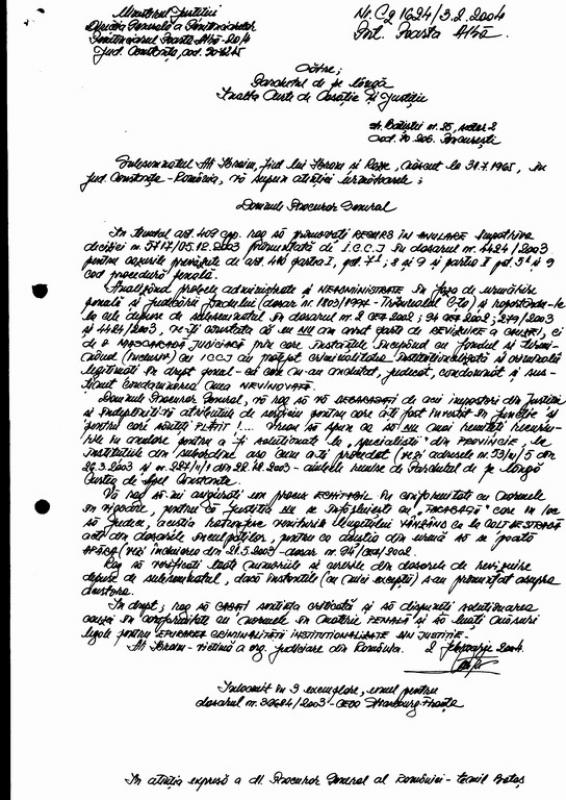 Ministerul Justiției
Direcția Generală a Penitenciarelor
Penitenciarul Poarta Albă-
Jud. Constanța, cod.
Nr. C2 1624/3.2.2004
Pnt. Poarta Albă
Către;
Parchetul de pe lîngă
Înalta Curte de Casație și Justiție
nr. 25, sector 2
București
Subsemnatul Ali Ibraim, fiul lui și născut la 31.7.1965, în
jud. Constanța - România, vă supun atenției următoarele;
Domnule Procuror General
În temeiul art. 409 cpp. rog să promovați RECURS ÎN ANULARE împotriva
deciziei nr. 5717/05.12.2003 pronunțată de I.C.C.J în dosarul nr. 4424/2003
pentru cazurile prevăzute de art. 410 partea I, pct. 7¹; 8 și 9 și partea II pct. și 9
cod procedură penală.
Analizînd probele administrate și NEADMINISTRATE în faza de urmărire
penală și judecării fondului (dosar nr. - Tribunalul C-ța) și raportîndu-le
la cele depuse de subsemnatul în dosarul nr. 2 2002; 2002; 279/2003
și 4424/2003, veți constata că eu NU am avut parte de REVIZUIRE a CAUZEI, ci
de o MASCARADĂ JUDICIARĂ prin care instanțele începînd cu fondul și termi-
nînd (inclusiv) cu ICCJ au protejat criminalitatea instituționalizată și criminalii
legitimați în drept penal - cei care m-au anchetat, judecat, condamnat și sus-
ținut condamnarea mea NEVINOVATĂ.
Domnule Procuror General, vă rog să vă DEBARASAȚI de acei impostori din justiție
și îndepliniți-vă atribuțiile de serviciu pentru care ați fost învestit în funcție și
pentru care sunteți PLĂTIT!... Vreau să spun ca să nu mai remiteți recursu-
rile în anulare pentru a fi soluționate la „specialiștii" din PROVINCIE, la
instituțiile din subordine așa cum ați procedat (vezi adresele nr. 53/ /5 din
26.3.2003 și nr. din 2003 - ambele remise de Parchetul de pe lîngă
Curtea de Apel Constanța.
Vă rog să-mi asigurați un proces ECHITABIL în conformitate cu normele
în vigoare, pentru că Justiția nu se înfăptuiește cu care în loc
să judece, acestia
acte din dosarele inculpaților, pentru ca aceștia din urmă să se poată
APĂRA (vezi încheierea din 21.5.2003 - dosar nr. 2002.
Rog să verificați toate memoriile și cererile din dosarele de revizuire
depuse de subsemnatul, dacă instanțele (cu mici excepții) s-au pronunțat asupra
acestora.
În drept; rog să CASAȚI sentința criticată și să dispuneți soluționarea
cauzei în conformitate cu normele în materie PENALĂ și să luați măsuri
legale pentru CRIMINALITĂȚII INSTITUȚIONALIZATE DIN JUSTIȚIE.
Ali Ibraim - victimă a org. judiciare din România. 2 februarie 2004.
Întocmit în 3 exemplare, unul pentru
dosarul nr. /2003 - CEDO Strasbourg-Franța
În atenția expresă a dl. Procuror General al României -